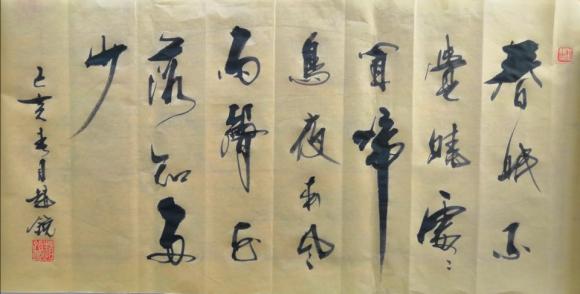 春眠不
覺曉處〻
聞啼
鳥夜来风
雨聲花
落知多
少
己亥春月